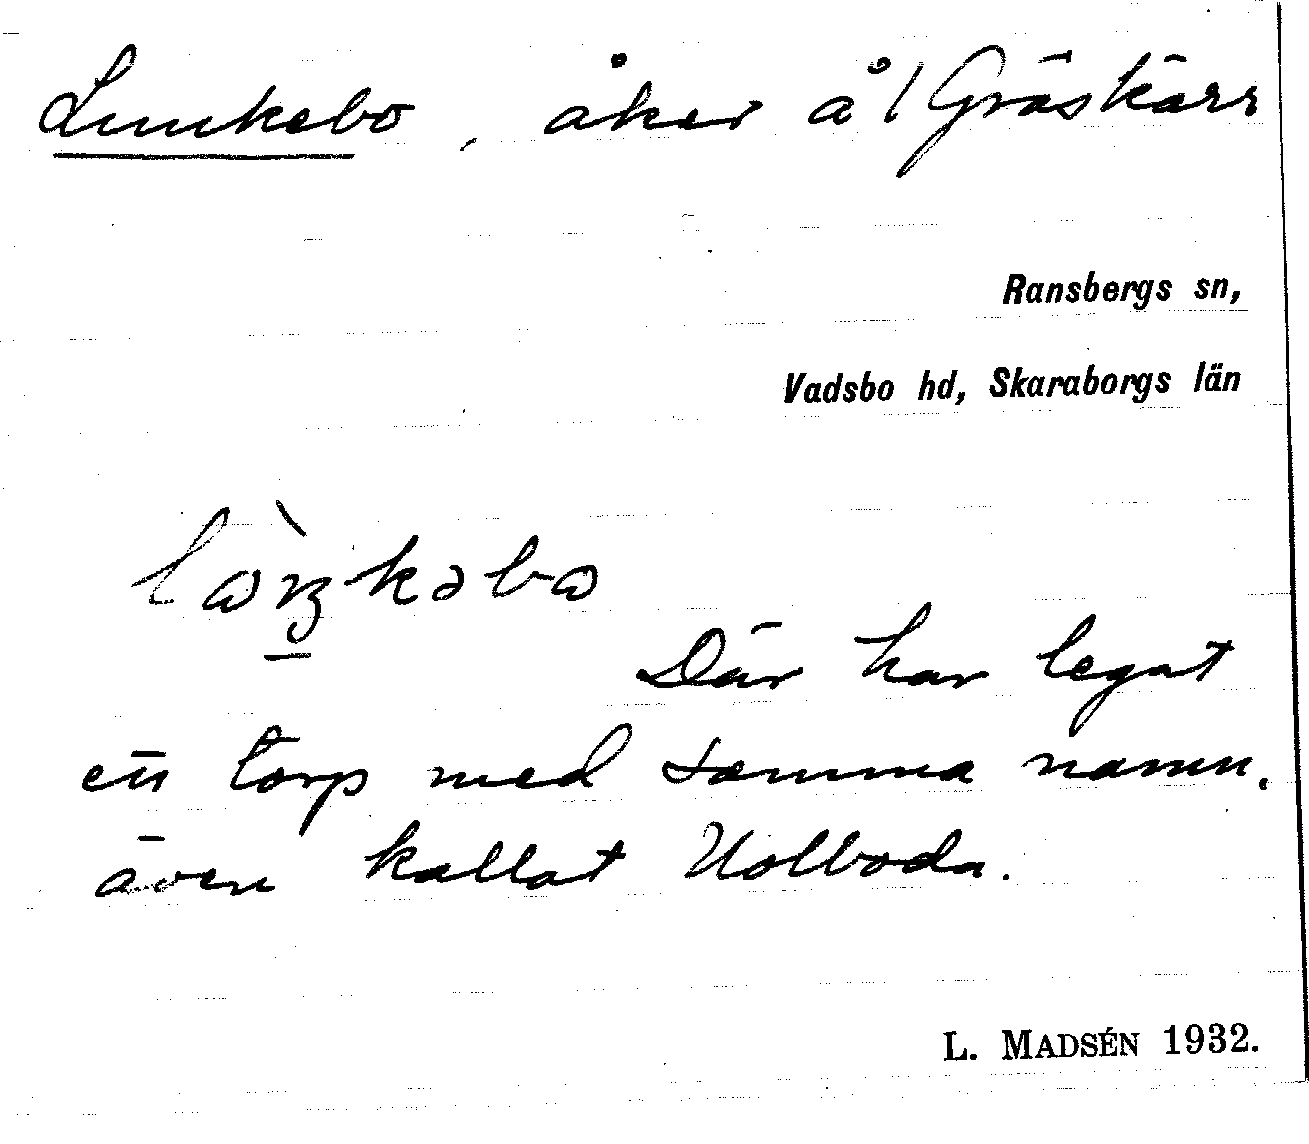 Lunkebo, åker å 1/1 Gräskärr
Ransbergs sn,
Vadsbo hd, Skaraborgs län
Där har legat
ett torp med samma namn.
även kallat Uolboda.
L. MADSÉN 1932.